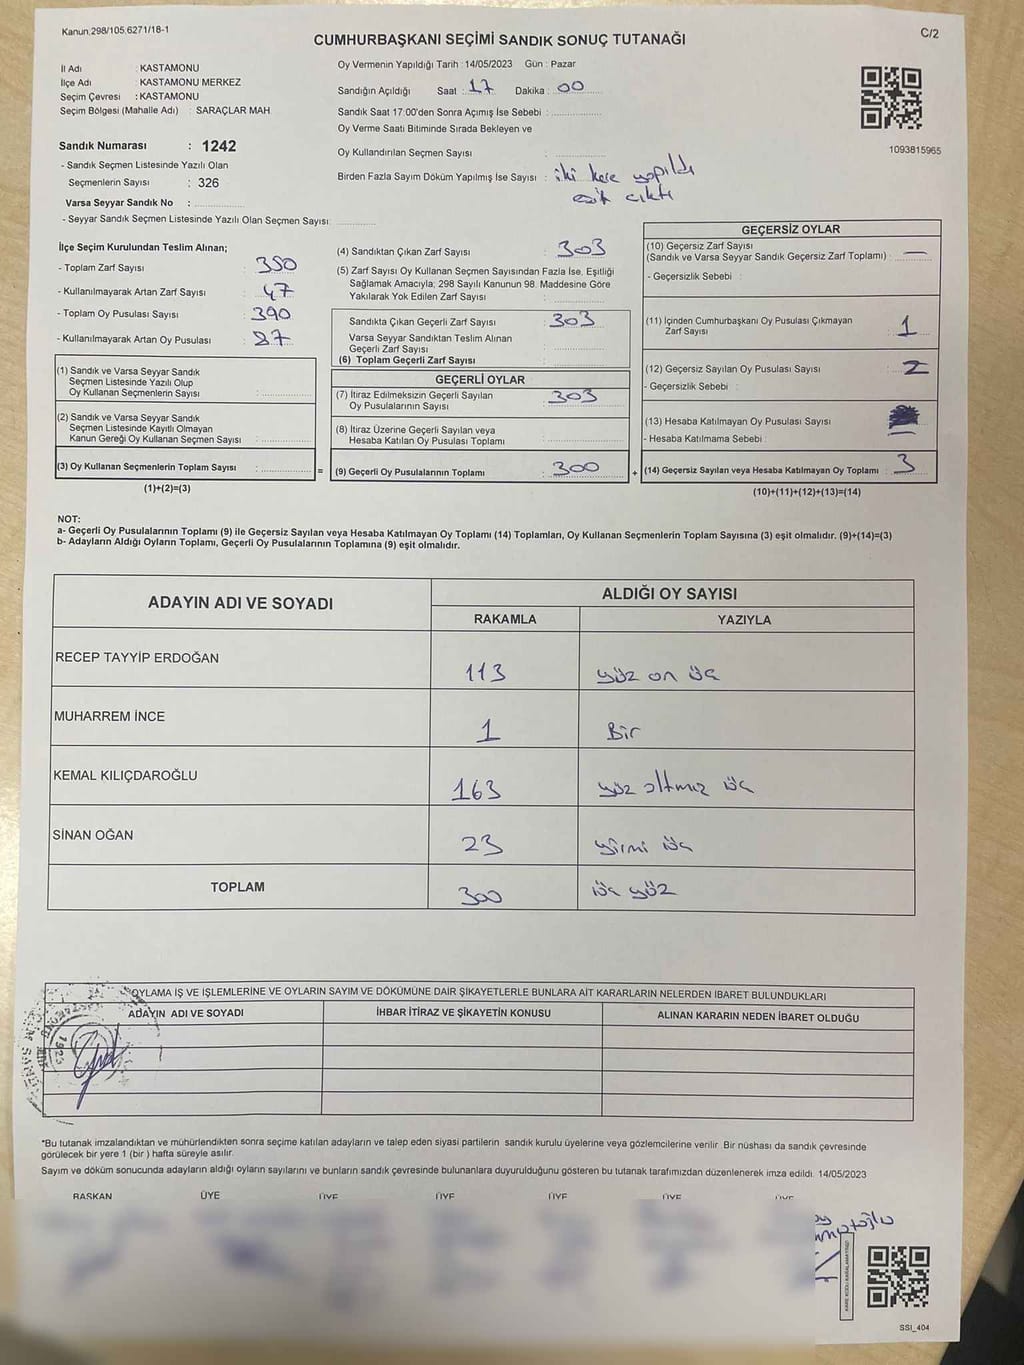 Kanun.298/105.6271/18-1
C/2
CUMHURBAŞKANI SEÇİMİ SANDIK SONUÇ TUTANAĞI
İl Adı : KASTAMONU
İlçe Adı : KASTAMONU MERKEZ
Seçim Çevresi : KASTAMONU
Seçim Bölgesi (Mahalle Adı) : SARAÇLAR MAH
Sandık Numarası : 1242
- Sandık Seçmen Listesinde Yazılı Olan
Seçmenlerin Sayısı : 326
Varsa Seyyar Sandık No :
- Seyyar Sandık Seçmen Listesinde Yazılı Olan Seçmen Sayısı:
Oy Vermenin Yapıldığı Tarih : 14/05/2023 Gün : Pazar
Sandığın Açıldığı Saat : 17 Dakika : 00
Sandık Saat 17:00'den Sonra Açımış İse Sebebi :
Oy Verme Saati Bitiminde Sırada Bekleyen ve
Oy Kullandırılan Seçmen Sayısı :
Birden Fazla Sayım Döküm Yapılmış İse Sayısı : iki kere yapıldı
eşit çıktı
1093815965
İlçe Seçim Kurulundan Teslim Alınan;
- Toplam Zarf Sayısı : 350
- Kullanılmayarak Artan Zarf Sayısı : 47
- Toplam Oy Pusulası Sayısı : 390
- Kullanılmayarak Artan Oy Pusulası : 87
(1) Sandık ve Varsa Seyyar Sandık
Seçmen Listesinde Yazılı Olup
Oy Kullanan Seçmenlerin Sayısı :
(2) Sandık ve Varsa Seyyar Sandık
Seçmen Listesinde Kayıtlı Olmayan
Kanun Gereği Oy Kullanan Seçmen Sayısı :
(3) Oy Kullanan Seçmenlerin Toplam Sayısı : =
(1)+(2)=(3)
(4) Sandıktan Çıkan Zarf Sayısı : 303
(5) Zarf Sayısı Oy Kullanan Seçmen Sayısından Fazla İse, Eşitliği
Sağlamak Amacıyla; 298 Sayılı Kanunun 98. Maddesine Göre
Yakılarak Yok Edilen Zarf Sayısı :
Sandıkta Çıkan Geçerli Zarf Sayısı : 303
Varsa Seyyar Sandıktan Teslim Alınan
Geçerli Zarf Sayısı :
(6) Toplam Geçerli Zarf Sayısı :
GEÇERLİ OYLAR
(7) İtiraz Edilmeksizin Geçerli Sayılan
Oy Pusulalarının Sayısı : 303
(8) İtiraz Üzerine Geçerli Sayılan veya
Hesaba Katılan Oy Pusulası Toplamı :
(9) Geçerli Oy Pusulalarının Toplamı : 300 +
GEÇERSİZ OYLAR
(10) Geçersiz Zarf Sayısı
(Sandık ve Varsa Seyyar Sandık Geçersiz Zarf Toplamı) : —
- Geçersizlik Sebebi :
(11) İçinden Cumhurbaşkanı Oy Pusulası Çıkmayan
Zarf Sayısı : 1
(12) Geçersiz Sayılan Oy Pusulası Sayısı : 2
- Geçersizlik Sebebi :
(13) Hesaba Katılmayan Oy Pusulası Sayısı :
- Hesaba Katılmama Sebebi :
(14) Geçersiz Sayılan veya Hesaba Katılmayan Oy Toplamı : 3
(10)+(11)+(12)+(13)=(14)
NOT:
a- Geçerli Oy Pusulalarının Toplamı (9) ile Geçersiz Sayılan veya Hesaba Katılmayan Oy Toplamı (14) Toplamları, Oy Kullanan Seçmenlerin Toplam Sayısına (3) eşit olmalıdır. (9)+(14)=(3)
b- Adayların Aldığı Oyların Toplamı, Geçerli Oy Pusulalarının Toplamına (9) eşit olmalıdır.
ADAYIN ADI VE SOYADI
ALDIĞI OY SAYISI
RAKAMLA YAZIYLA
RECEP TAYYİP ERDOĞAN 113 yüz on üç
MUHARREM İNCE 1 Bir
KEMAL KILIÇDAROĞLU 163 yüz altmış üç
SİNAN OĞAN 23 yirmi üç
TOPLAM 300 üç yüz
OYLAMA İŞ VE İŞLEMLERİNE VE OYLARIN SAYIM VE DÖKÜMÜNE DAİR ŞİKAYETLERLE BUNLARA AİT KARARLARIN NELERDEN İBARET BULUNDUKLARI
ADAYIN ADI VE SOYADI İHBAR İTİRAZ VE ŞİKAYETİN KONUSU ALINAN KARARIN NEDEN İBARET OLDUĞU
*Bu tutanak imzalandıktan ve mühürlendikten sonra seçime katılan adayların ve talep eden siyasi partilerin sandık kurulu üyelerine veya gözlemcilerine verilir. Bir nüshası da sandık çevresinde
görülecek bir yere 1 (bir ) hafta süreyle asılır.
Sayım ve döküm sonucunda adayların aldığı oyların sayılarını ve bunların sandık çevresinde bulunanlara duyurulduğunu gösteren bu tutanak tarafımızdan düzenlenerek imza edildi. 14/05/2023
BAŞKAN ÜYE ÜYE ÜYE ÜYE ÜYE ÜYE
KARE KODU KARALAMAYINIZ!
SSI_404